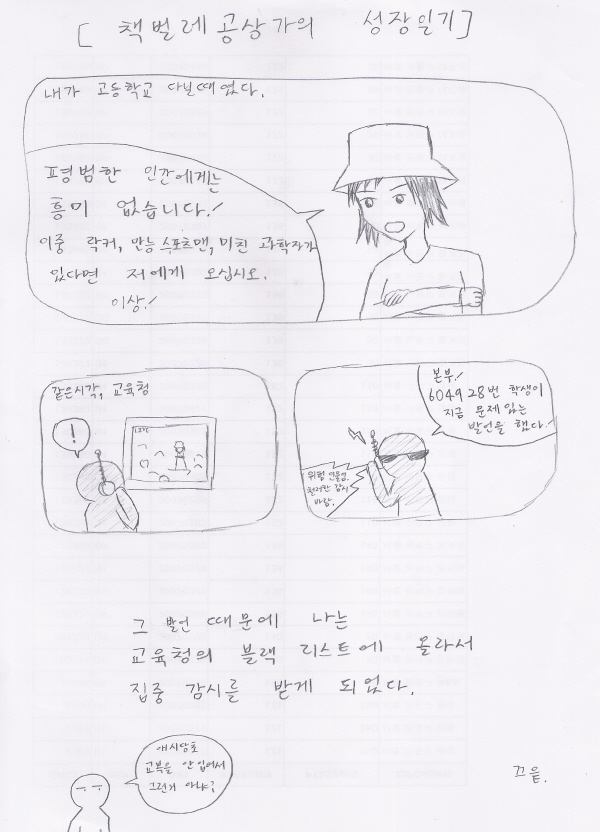 [ 책벌레 공상가의 성장일기 ]
내가 고등학교 다닐때였다.
평범한 인간에게는
흥미 없습니다!
이중 락커, 만능 스포츠맨, 미친 과학자가
있다면 저에게 오십시오.
이상!
같은시각, 교육청
!
본부!
604928번 학생이
지금 문제있는
발언을 했다!
위험 인물임.
철저한 감시
바람.
그 발언 때문에 나는
교육청의 블랙 리스트에 올라서
집중 감시를 받게 되었다.
애시당초
교복을 안 입어서
그런거 아냐?
끄읕.